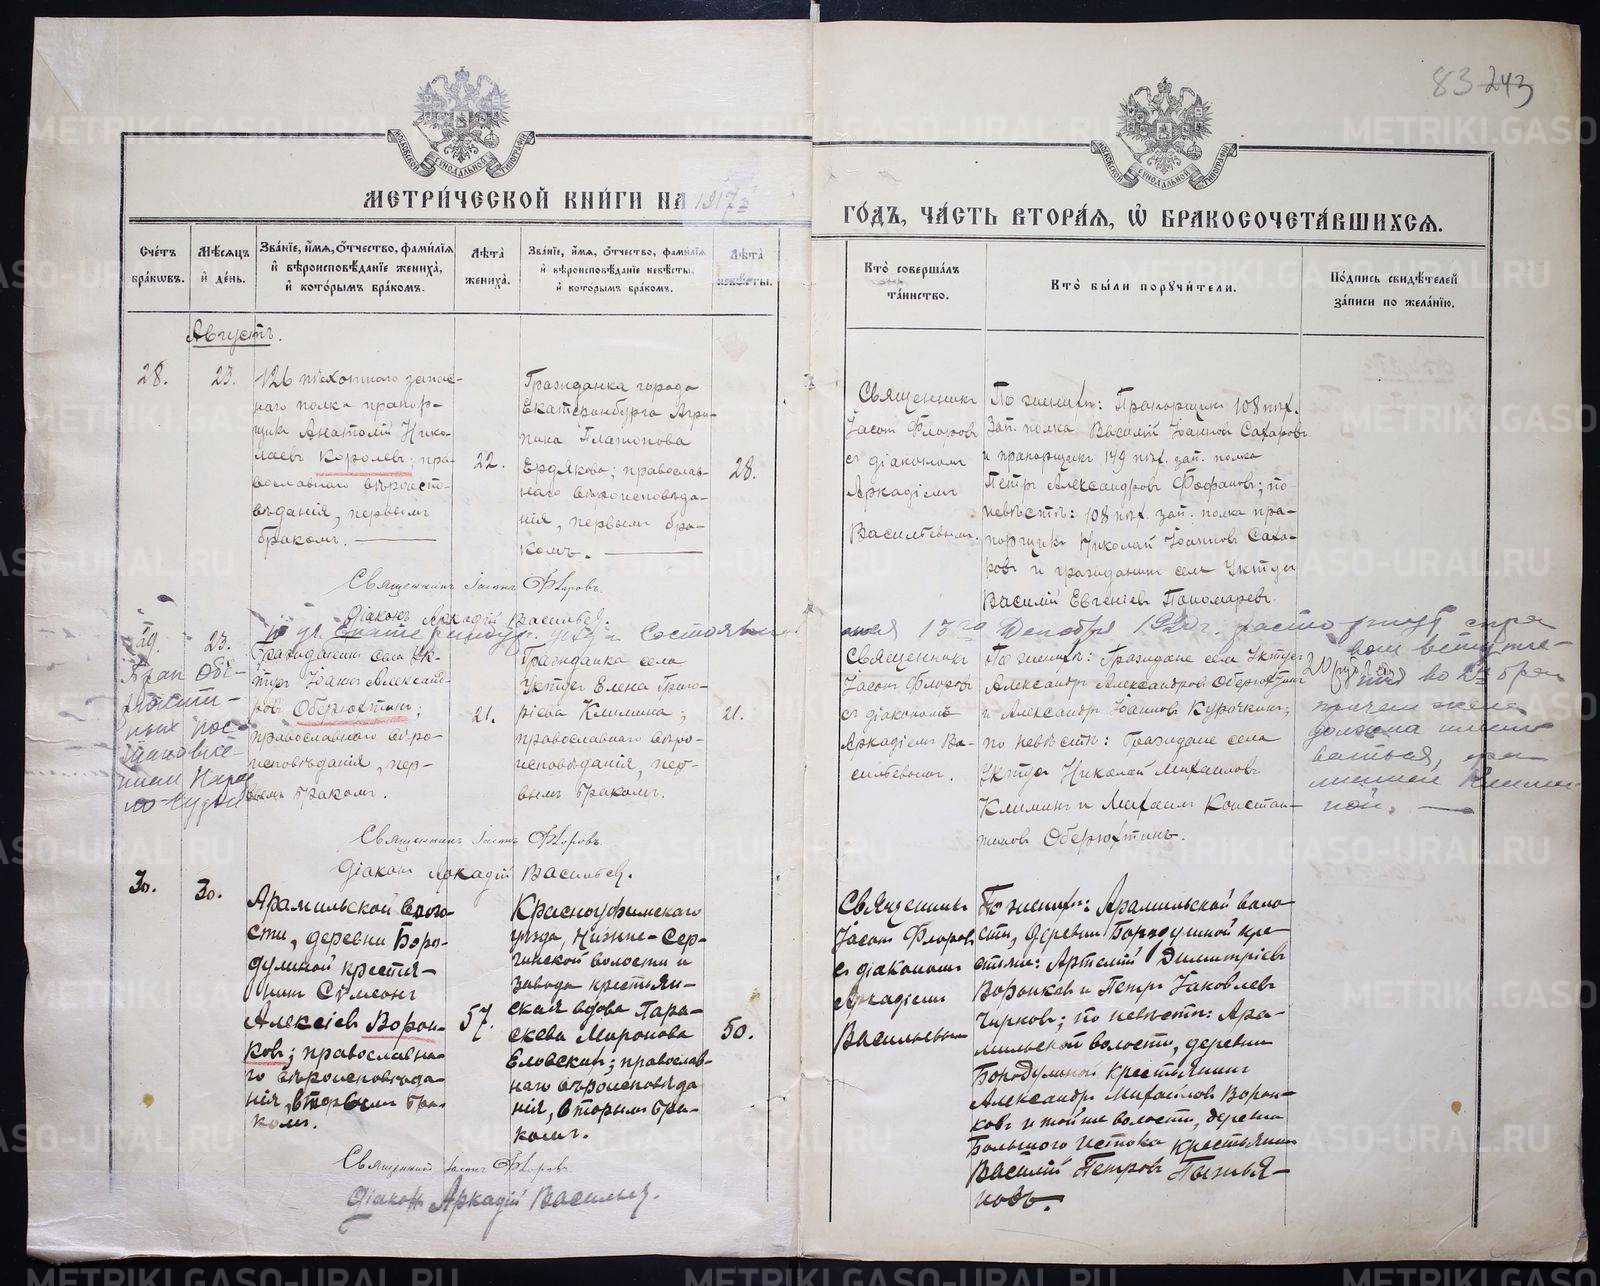 83 243
МЕТРИ́ЧЕСКОЙ КНИ́ГИ НА 1917 г.
ГО́ДЪ, ЧА́СТЬ ВТОРА́Я, Ѽ БРАКОСОЧЕТА́ВШИХСЯ.
Сче́тъ бра́кѡвъ.
Мѣ́сяцъ и҆ де́нь.
Зва́нїе, и҆́мя, ѻ҆́тчество, фами́лїя и҆ вѣроисповѣ́данїе жениха̀, и҆ кото́рымъ бра́комъ.
Лѣ́та̀ жениха̀.
Зва́нїе, и҆́мя, ѻ҆́тчество, фами́лїя и҆ вѣроисповѣ́данїе невѣ́сты, и҆ кото́рымъ бра́комъ.
Лѣ́та̀ невѣ́сты.
Кто̀ соверша́лъ та́инство.
Кто̀ бы́ли порꙋчи́тели.
По́дпись свидѣ́телей за́писи по жела́нїю.
Августъ.
28.
23.
126 пѣхотнаго запас-
наго полка прапор-
щикъ Анатолій Нико-
лаевъ Королевъ; пра-
вославнаго вѣроиспо-
вѣданія, первымъ
бракомъ.
22.
Гражданка города
Екатеринбурга Агри-
пина Платонова
Ердякова; православ-
наго вѣроисповѣда-
нія, первымъ бра-
комъ.
28.
Священникъ
Іасонъ Флоровъ
съ діакономъ
Аркадіемъ
Васильевымъ.
По женихѣ: Прапорщикъ 108 пѣх.
зап. полка Василій Іоанновъ Сахаровъ
и прапорщикъ 149 пѣх. зап. полка
Петръ Александровъ Фофановъ; по
невѣстѣ: 108 пѣх. зап. полка пра-
порщикъ Николай Іоанновъ Саха-
ровъ и гражданинъ села Уктуса
Василій Евгеніевъ Пономаревъ.
Священникъ Іасонъ Флоровъ.
Діаконъ Аркадій Васильев.
29.
23.
Гражданинъ села Ук-
туса Іоаннъ Александ-
ровъ Оберюхтинъ;
православнаго вѣро-
исповѣданія, пер-
вымъ бракомъ.
21.
Гражданка села
Уктуса Елена Григо-
рьева Климина;
православнаго вѣро-
исповѣданія, пер-
вымъ бракомъ.
21.
Священникъ
Іасонъ Флоровъ
съ діакономъ
Аркадіемъ Ва-
сильевымъ.
По женихѣ: Граждане села Уктуса
Александръ Александровъ Оберюхтинъ
и Александръ Іоанновъ Курочкинъ;
по невѣстѣ: Граждане села
Уктуса Николай Михаиловъ
Климинъ и Михаилъ Констан-
тиновъ Оберюхтинъ.
Брак
Народ
13го Декабря 1920 г. расторгнут
во 2й брак
причем жена
должна имено-
ваться
Клими-
ной.
Священникъ Іасонъ Флоровъ.
Діаконъ Аркадій Васильев.
30.
30.
Арамильской воло-
сти, деревни Боро-
дулиной крестья-
нинъ Сѵмеонъ
Алексіевъ Ворон-
ковъ; православна-
го вѣроисповѣда-
нія, вторымъ бра-
комъ.
57.
Красноуфимскаго
уѣзда, Нижне-Сер-
гинской волости и
завода крестьян-
ская вдова Пара-
скева Миронова
Еловскихъ; православ-
наго вѣроисповѣда-
нія, вторымъ бра-
комъ.
50.
Священникъ
Іасонъ Флоровъ
съ діакономъ
Аркадіемъ
Васильевымъ
По женихѣ: Арамильской воло-
сти, деревни Бородулиной кре-
стьяне: Артемій Димитріевъ
Воронковъ и Петръ Іаковлевъ
Чирковъ; по невѣстѣ: Ара-
мильской волости, деревни
Бородулиной крестьянинъ
Александръ Михаиловъ Ворон-
ковъ и той же волости, деревни
Большого Истока крестьянинъ
Василій Петровъ Пьянья-
новъ.
Священникъ Іасонъ Флоровъ
Діаконъ Аркадій Васильев.
METRIKI.GASO-URAL.RU